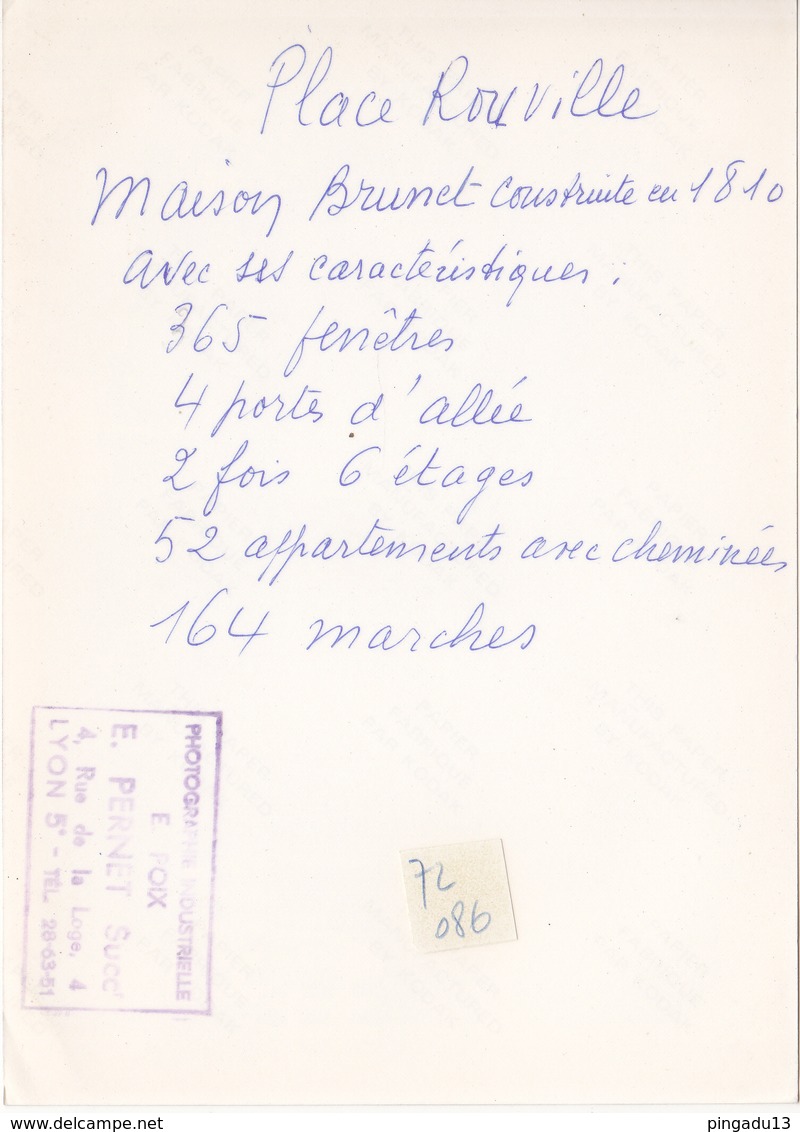 Place Rouville
Maison Brunet construite en 1810
avec ses caractéristiques :
365 fenêtres
4 portes d'allée
2 fois 6 étages
52 appartements avec cheminées
164 marches
PHOTOGRAPHIE INDUSTRIELLE
E. FOIX
E. PERNET Succ'
4, Rue de la Loge, 4
LYON 5e - TÉL. 28-63-51
72
086
www.delcampe.net
pingadu13